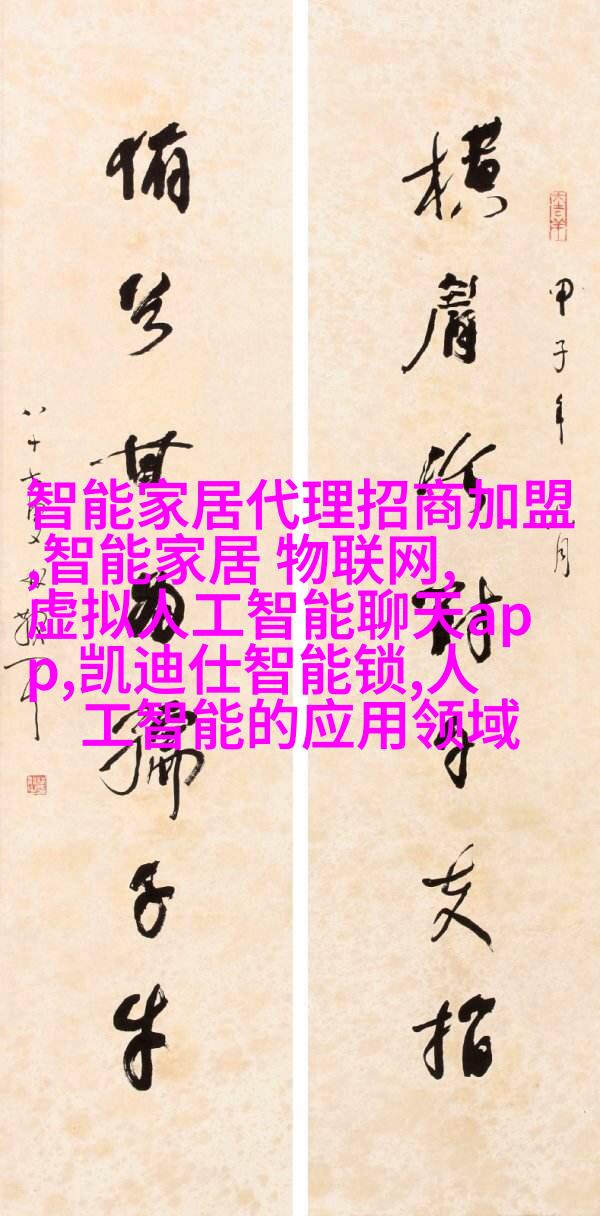 横眉冷對千夫指
甲子年
月
俯首甘為孺子牛
智能家居代理招商加盟
,智能家居 物联网,
虚拟人工智能聊天ap
p,凯迪仕智能锁,人
工智能的应用领域